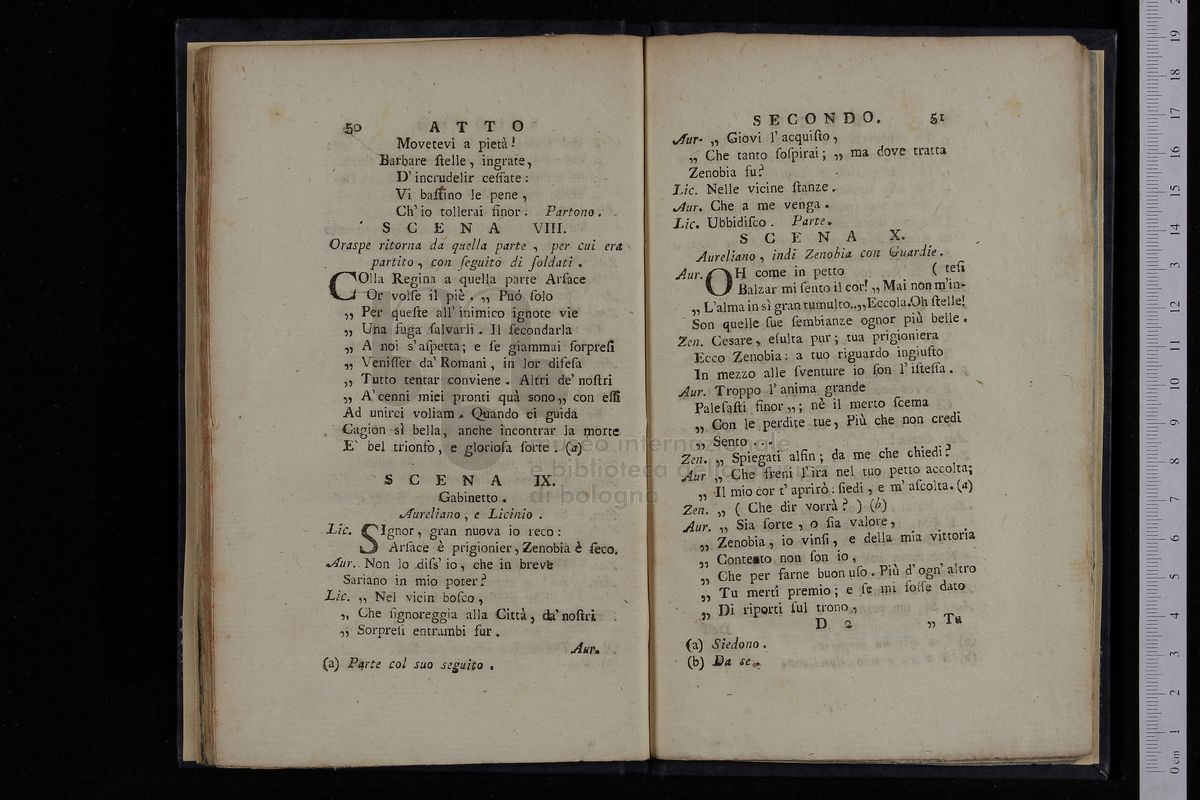 50 ATTO
Movetevi a pietà!
Barbare ſtelle, ingrate,
D' incrudelir ceſſate:
Vi baſtino le pene,
Ch' io tollerai finor. Partono.
SCENA VIII.
Oraspe ritorna da quella parte, per cui era
partito, con ſeguito di ſoldati.
COlla Regina a quella parte Arſace
Or volſe il piè. „ Può ſolo
„ Per queſte all' inimico ignote vie
„ Una fuga ſalvarli. Il ſecondarla
„ A noi s'aſpetta; e ſe giammai ſorpreſi
„ Veniſſer da' Romani, in lor difeſa
„ Tutto tentar conviene. Altri de' noſtri
„ A' cenni miei pronti quà sono„ con eſſi
Ad unirci voliam. Quando ci guida
Cagion sì bella, anche incontrar la morte
E' bel trionfo, e glorioſa ſorte. (a)
SCENA IX.
Gabinetto.
Aureliano, e Licinio.
Lic. SIgnor, gran nuova io reco:
Arſace è prigionier, Zenobia è ſeco.
Aur. Non lo diſs' io, che in breve
Sariano in mio poter?
Lic. „ Nel vicin boſco,
„ Che ſignoreggia alla Città, da' noſtri
„ Sorpreſi entrambi fur.
Aur.
(a) Parte col suo seguito.
SECONDO. 51
Aur. „ Giovi l' acquiſto,
„ Che tanto ſoſpirai; „ ma dove tratta
Zenobia fu?
Lic. Nelle vicine ſtanze.
Aur. Che a me venga.
Lic. Ubbidiſco. Parte.
SCENA X.
Aureliano, indi Zenobia con Guardie.
Aur. OH come in petto ( teſi
Balzar mi ſento il cor! „ Mai non m'in-
„ L'alma in sì gran tumulto..„Eccola.Oh ſtelle!
Son quelle ſue ſembianze ognor più belle.
Zen. Ceſare, eſulta pur; tua prigioniera
Ecco Zenobia: a tuo riguardo ingiuſto
In mezzo alle ſventure io ſon l' iſteſſa.
Aur. Troppo l' anima grande
Paleſaſti finor„; nè il merto ſcema
„ Con le perdite tue, Più che non credi
„ Sento ...
Zen. „ Spiegati alfin; da me che chiedi?
Aur „ Che freni l'ira nel tuo petto accolta;
„ Il mio cor t' aprirò: ſiedi, e m' aſcolta. (a)
Zen. „ ( Che dir vorrà? ) (b)
Aur. „ Sia ſorte, o ſia valore,
„ Zenobia, io vinſi, e della mia vittoria
„ Contento non ſon io,
„ Che per farne buon uſo. Più d' ogn' altro
„ Tu merti premio; e ſe mi foſſe dato
„ Di riporti ſul trono,
D 2 „ Tu
(a) Siedono.
(b) Da se.
museo internazionale
e biblioteca della musica
di bologna